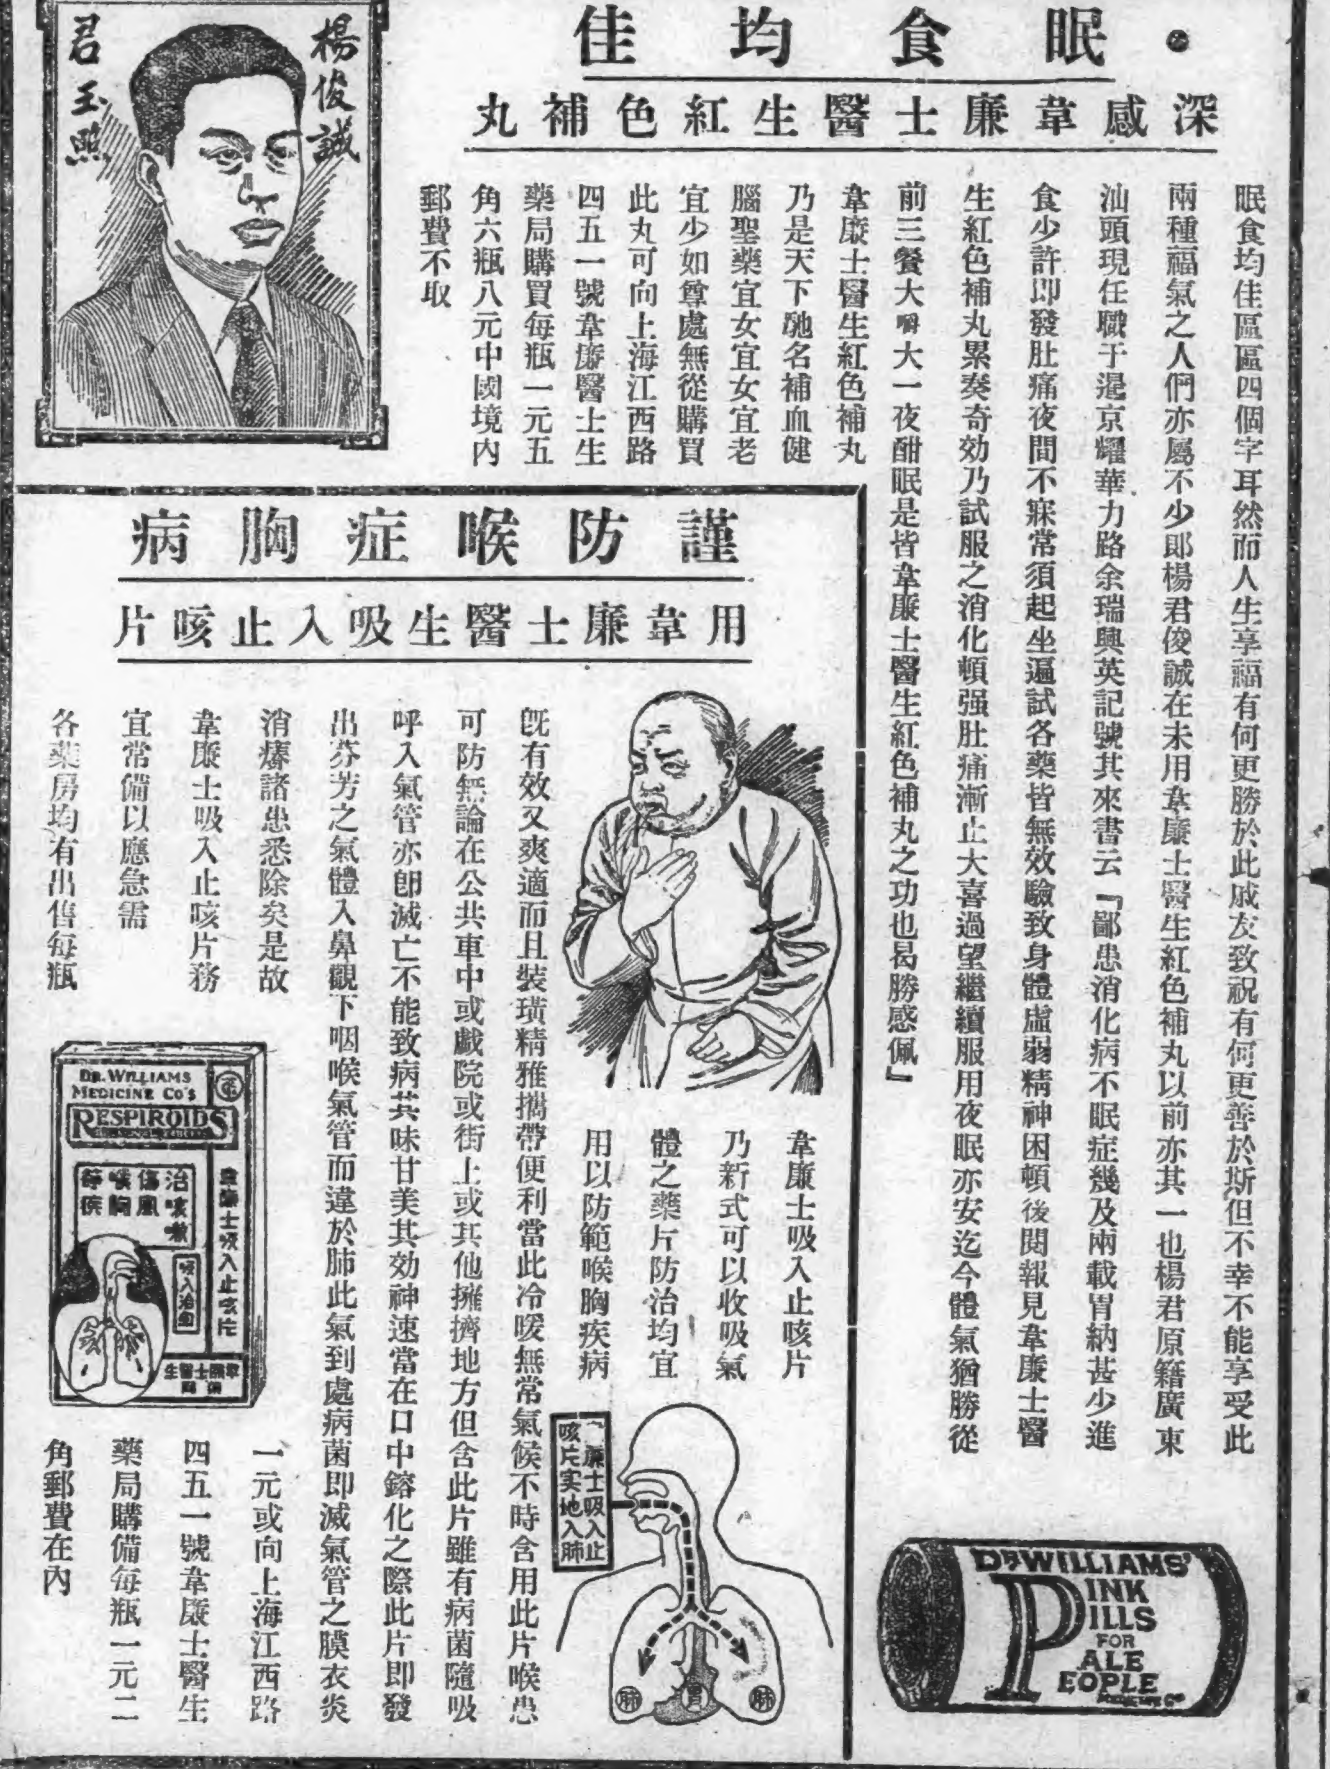 眠食均佳
深感韋廉士醫生紅色補丸
楊俊誠
君玉照
眠食均佳區區四個字耳然而人生享福有何更勝於此戚友致祝有何更善於斯但不幸不能享受此
兩種福氣之人們亦屬不少即楊君俊誠在未用韋廉士醫生紅色補丸以前亦其一也楊君原籍廣東
汕頭現任職于暹京耀華力路余瑞興英記號其來書云『鄙患消化病不眠症幾及兩載胃納甚少進
食少許即發肚痛夜間不寐常須起坐遍試各藥皆無效驗致身體虛弱精神困頓後閱報見韋廉士醫
生紅色補丸累奏奇効乃試服之消化頓强肚痛漸止大喜過望繼續服用夜眠亦安迄今體氣猶勝從
前三餐大嚼大一夜酣眠是皆韋廉士醫生紅色補丸之功也曷勝感佩』
韋廉士醫生紅色補丸
乃是天下馳名補血健
腦聖藥宜女宜女宜老
宜少如尊處無從購買
此丸可向上海江西路
四五一號韋廉醫士生
藥局購買每瓶一元五
角六瓶八元中國境內
郵費不取
DR WILLIAMS'
PINK
PILLS
FOR
PALE
PEOPLE
謹防喉症胸病
用韋廉士醫生吸入止咳片
韋廉士吸入止咳片
乃新式可以收吸氣
體之藥片防治均宜
用以防範喉胸疾病
既有效又爽適而且裝璜精雅攜帶便利當此冷暖無常氣候不時含用此片喉患
可防無論在公共車中或戲院或街上或其他擁擠地方但含此片雖有病菌隨吸
呼入氣管亦卽滅亡不能致病其味甘美其効神速當在口中鎔化之際此片即發
出芬芳之氣體入鼻觀下咽喉氣管而達於肺此氣到處病菌即滅氣管之膜衣炎
消瘰諸患悉除矣是故
韋廉士吸入止咳片務
宜常備以應急需
各藥房均有出售每瓶
一元或向上海江西路
四五一號韋廉士醫生
藥局購備每瓶一元二
角郵費在內
廉士吸入止
咳片实地入肺
肺
胃
肺
DR. WILLIAMS
MEDICINE CO'S
RESPIROIDS
韋廉士吸入止咳片
治咳嗽
傷風
喉胸
吸入治肺